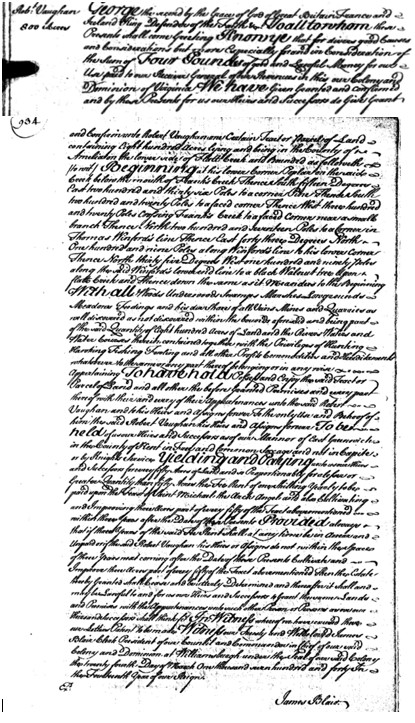 Robt. Vaughan
800 Acres
George the second by the Grace of God of Great Britain France and
Ireland King Defender of the Faith &c To all to whom these
Presents shall come Greeting Know ye that for divers good Causes
and Considerations but more Especially for and in Consideration of
the Sum of Four Pounds of good and Lawful Money for our
Use paid to our Receiver General of our Revenues in this our Colony and
Dominion of Virginia We have Given Granted and confirmed
and by these Presents for us our Heirs and Successors do Give Grant
934
and Confirm unto Robert Vaughan one Certain Tract or Parcel of Land
containing Eight hundred Acres lying and being in the County of
Amelia on the lower side of Flatt Creek and Bounded as followeth
(to wit) Beginning at his lower Corner Poplar on the said
Creek below the mouth of Franks Creek Thence South fifteen Degrees
East two hundred and thirty six Poles to a corner Pine Thence South
two hundred and twenty Poles to a faced corner Thence West three hundred
and twenty Poles Crossing Franks Creek to a faced Corner near a small
branch Thence North two hundred and seventeen Poles to a Corner in
Thomas Winfords Line Thence East forty three Degrees North
One hundred and nine Poles along Winfords Line to his lower Corner
Thence North thirty five Degrees West one hundred and ninety Poles
along the said Winfords lower Line to a black Walnut tree upon
Flatt Creek and Thence down the same as it Meanders to the Beginning
With all Woods Underwoods Swamps Marshes Low grounds
Meadows Feedings and his due share of all Veins Mines and Quarries as
well discovered as not discovered within the bounds aforesaid and being part
of the said Quantity of Eight hundred Acres of Land and the Rivers Waters and
Water Courses therein contained together with the Privileges of Hunting
Hawking Fishing Fowling and all other Profits Commodities and Hereditaments
whatsoever to the same or any part thereof belonging or in any wise
Appertaining To have hold Possess and Enjoy the said Tract or
Parcel of Land and all other the before granted Premises and every part
thereof with their and every of their Appurtenances unto the said Robert
Vaughan and to his Heirs and Assigns forever To the only Use and Behoof of
him the said Robert Vaughan his Heirs and Assigns forever To be
held of us our Heirs and Successors as of our Mannor of East Greenwich
in the County of Kent in free and Common Soccage and not in Capite
or by Knights Service Yielding and Paying unto us our Heirs
and Successors for every fifty Acres of Land and so Proportionably for a lesser or
Greater Quantity than fifty Acres the Fee Rent of one shilling Yearly to be
paid upon the Feast of Saint Michael the Arch Angel and also Cultivating
and Improving three Acres part of every fifty of the Tract abovementioned
within three Years after the Date of these Presents Provided always
that if three Years of the said Fee Rent shall at any time be in Arrear and
Unpaid or if the said Robert Vaughan his Heirs or Assigns do not within the space
of three Years next coming after the Date of these Presents Cultivate and
Improve three Acres part of every fifty of the Tract abovementioned Then the Estate
hereby granted shall Cease and be Utterly Determined and thereafter it shall and
may be Lawful to and for us our Heirs and Successors to grant the same Lands
and Premises with the Appurtenances unto such other Person or Persons as we our
Heirs and Successors shall think fit In Witness whereof we have caused these
our Letters Patent to be made Witness our Trusty and Welbeloved James
Blair Clerk President of our Council and Commander in Chief of our said
Colony and Dominion at Williamsburgh under the Seal of our said Colony
the twenty fourth Day of March One thousand seven hundred and forty In
the Fourteenth Year of our Reign
James Blair